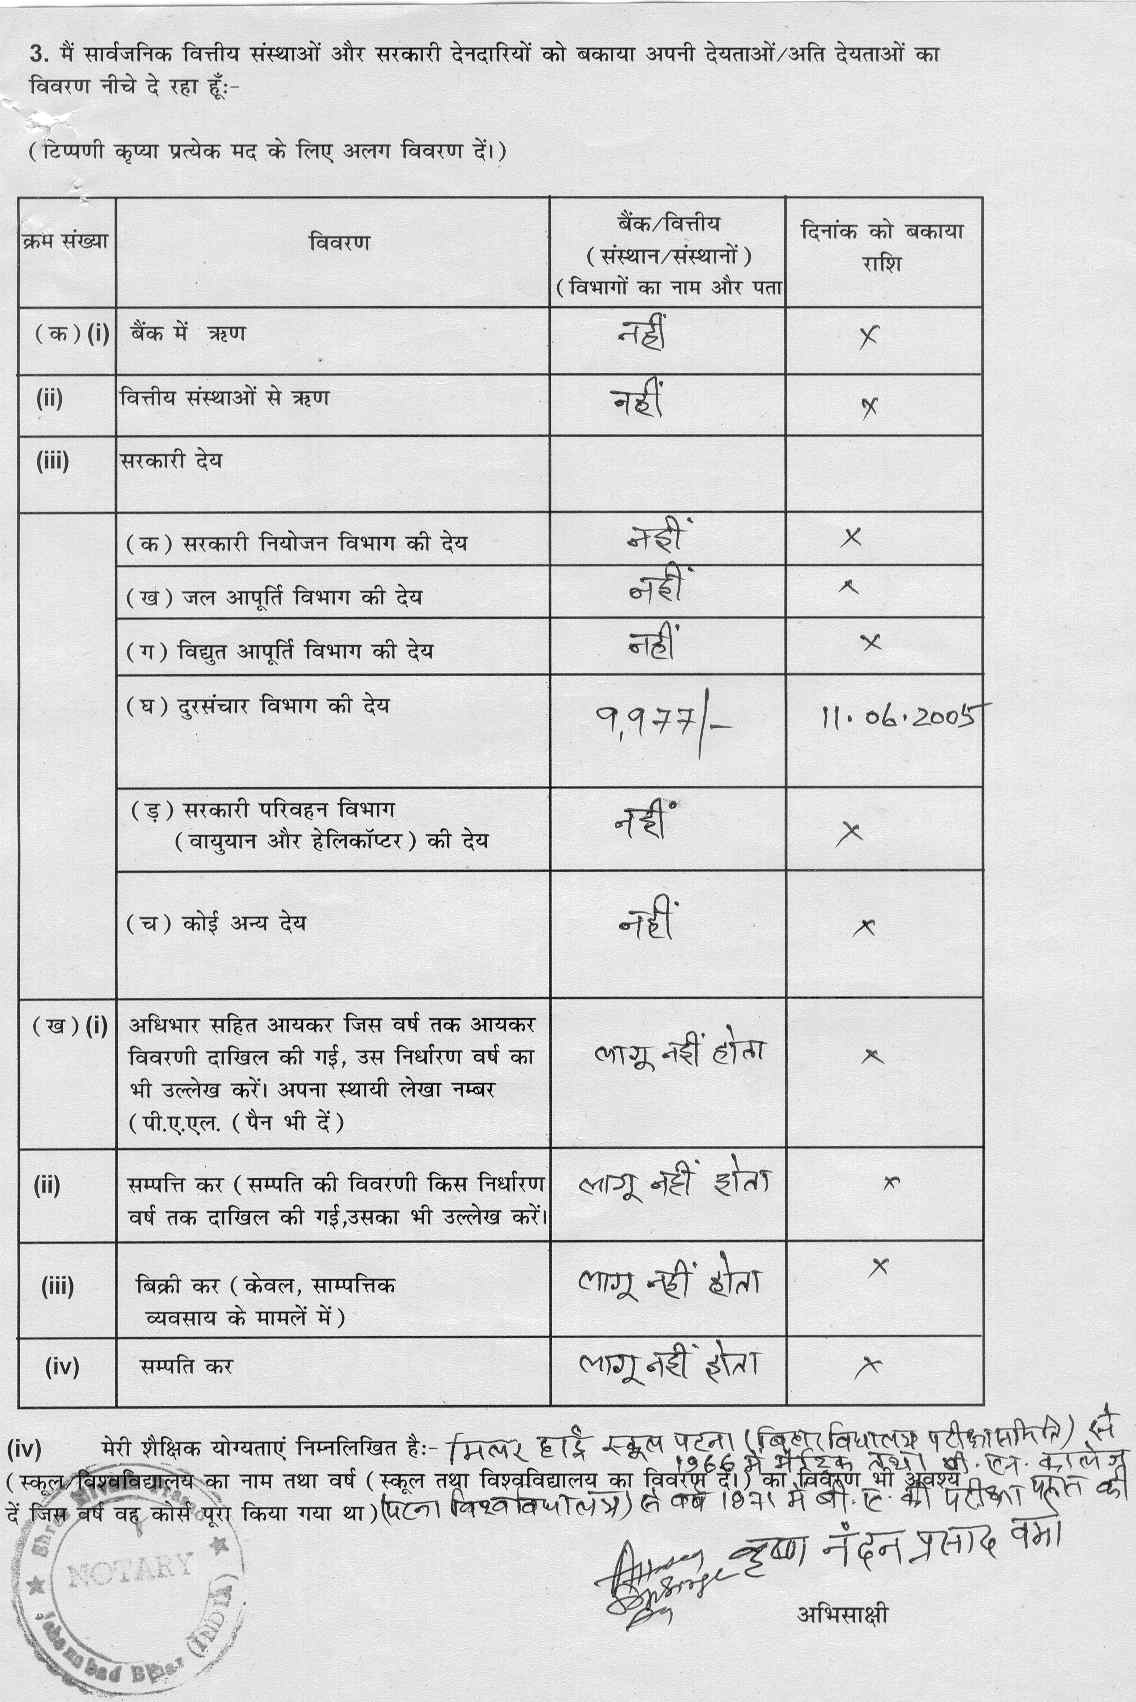 3. मैं सार्वजनिक वित्तीय संस्थाओं और सरकारी देनदारियों को बकाया अपनी देयताओं/अति देयताओं का
विवरण नीचे दे रहा हूँ:-
(टिप्पणी कृप्या प्रत्येक मद के लिए अलग विवरण दें।)
क्रम संख्या विवरण बैंक/वित्तीय (संस्थान/संस्थानों) (विभागों का नाम और पता दिनांक को बकाया राशि
(क)(i) बैंक में ऋण नहीं ×
(ii) वित्तीय संस्थाओं से ऋण नहीं ×
(iii) सरकारी देय
(क) सरकारी नियोजन विभाग की देय नहीं ×
(ख) जल आपूर्ति विभाग की देय नहीं ×
(ग) विद्युत आपूर्ति विभाग की देय नहीं ×
(घ) दुरसंचार विभाग की देय ९,९७७/- 11.06.2005
(ड़) सरकारी परिवहन विभाग
(वायुयान और हेलिकॉप्टर) की देय नहीं ×
(च) कोई अन्य देय नहीं ×
(ख)(i) अधिभार सहित आयकर जिस वर्ष तक आयकर
विवरणी दाखिल की गई, उस निर्धारण वर्ष का लागू नहीं होता ×
भी उल्लेख करें। अपना स्थायी लेखा नम्बर
(पी.ए.एल. (पैन भी दें)
(ii) सम्पत्ति कर (सम्पति की विवरणी किस निर्धारण लागू नहीं होता ×
वर्ष तक दाखिल की गई,उसका भी उल्लेख करें।
(iii) बिक्री कर (केवल, साम्पत्तिक लागू नहीं होता ×
व्यवसाय के मामलें में)
(iv) सम्पति कर लागू नहीं होता ×
(iv) मेरी शैक्षिक योग्यताएं निम्नलिखित है:- मिलर हाई स्कूल पटना (बिहार विधालय परीक्षा समिति) से
1966 में मैट्रिक तथा बी. एन. कालेज
(स्कूल/विश्वविद्यालय का नाम तथा वर्ष (स्कूल तथा विश्वविद्यालय का विवरण दें।) का विवरण भी अवश्य
दें जिस वर्ष वह कोर्स पूरा किया गया था) (पटना विश्वविधालय) से वर्ष 1971 में बी. ए. की परीक्षा पास की
कृष्ण नंदन प्रसाद वर्मा
अभिसाक्षी
NOTARY
Jehanabad Bihar (INDIA)